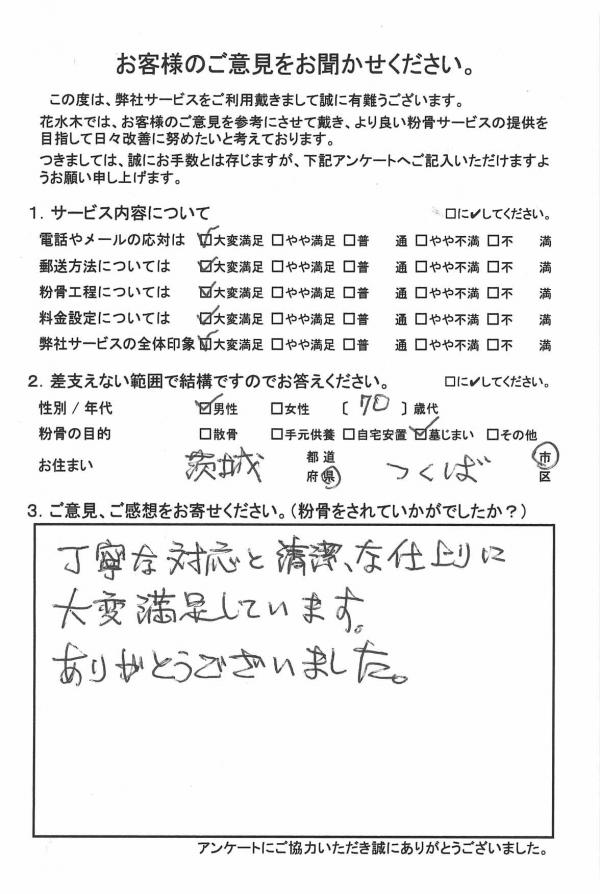 お客様のご意見をお聞かせください。
この度は、弊社サービスをご利用戴きまして誠に有難うございます。
花水木では、お客様のご意見を参考にさせて戴き、より良い粉骨サービスの提供を
目指して日々改善に努めたいと考えております。
つきましては、誠にお手数とは存じますが、下記アンケートへご記入いただけますよ
うお願い申し上げます。
1. サービス内容について □に✔してください。
電話やメールの応対は ☑大変満足 □やや満足 □普 通 □やや不満 □不 満
郵送方法については ☑大変満足 □やや満足 □普 通 □やや不満 □不 満
粉骨工程については ☑大変満足 □やや満足 □普 通 □やや不満 □不 満
料金設定については ☑大変満足 □やや満足 □普 通 □やや不満 □不 満
弊社サービスの全体印象 ☑大変満足 □やや満足 □普 通 □やや不満 □不 満
2. 差支えない範囲で結構ですのでお答えください。 □に✔してください。
性別 / 年代 ☑男性 □女性 〔 70 〕歳代
粉骨の目的 □散骨 □手元供養 □自宅安置 ☑墓じまい □その他
お住まい 茨城 都道府県 つくば 市区
3. ご意見、ご感想をお寄せください。(粉骨をされていかがでしたか?)
丁寧な対応と清潔、な仕上りに
大変満足しています。
ありがとうございました。
アンケートにご協力いただき誠にありがとうございました。